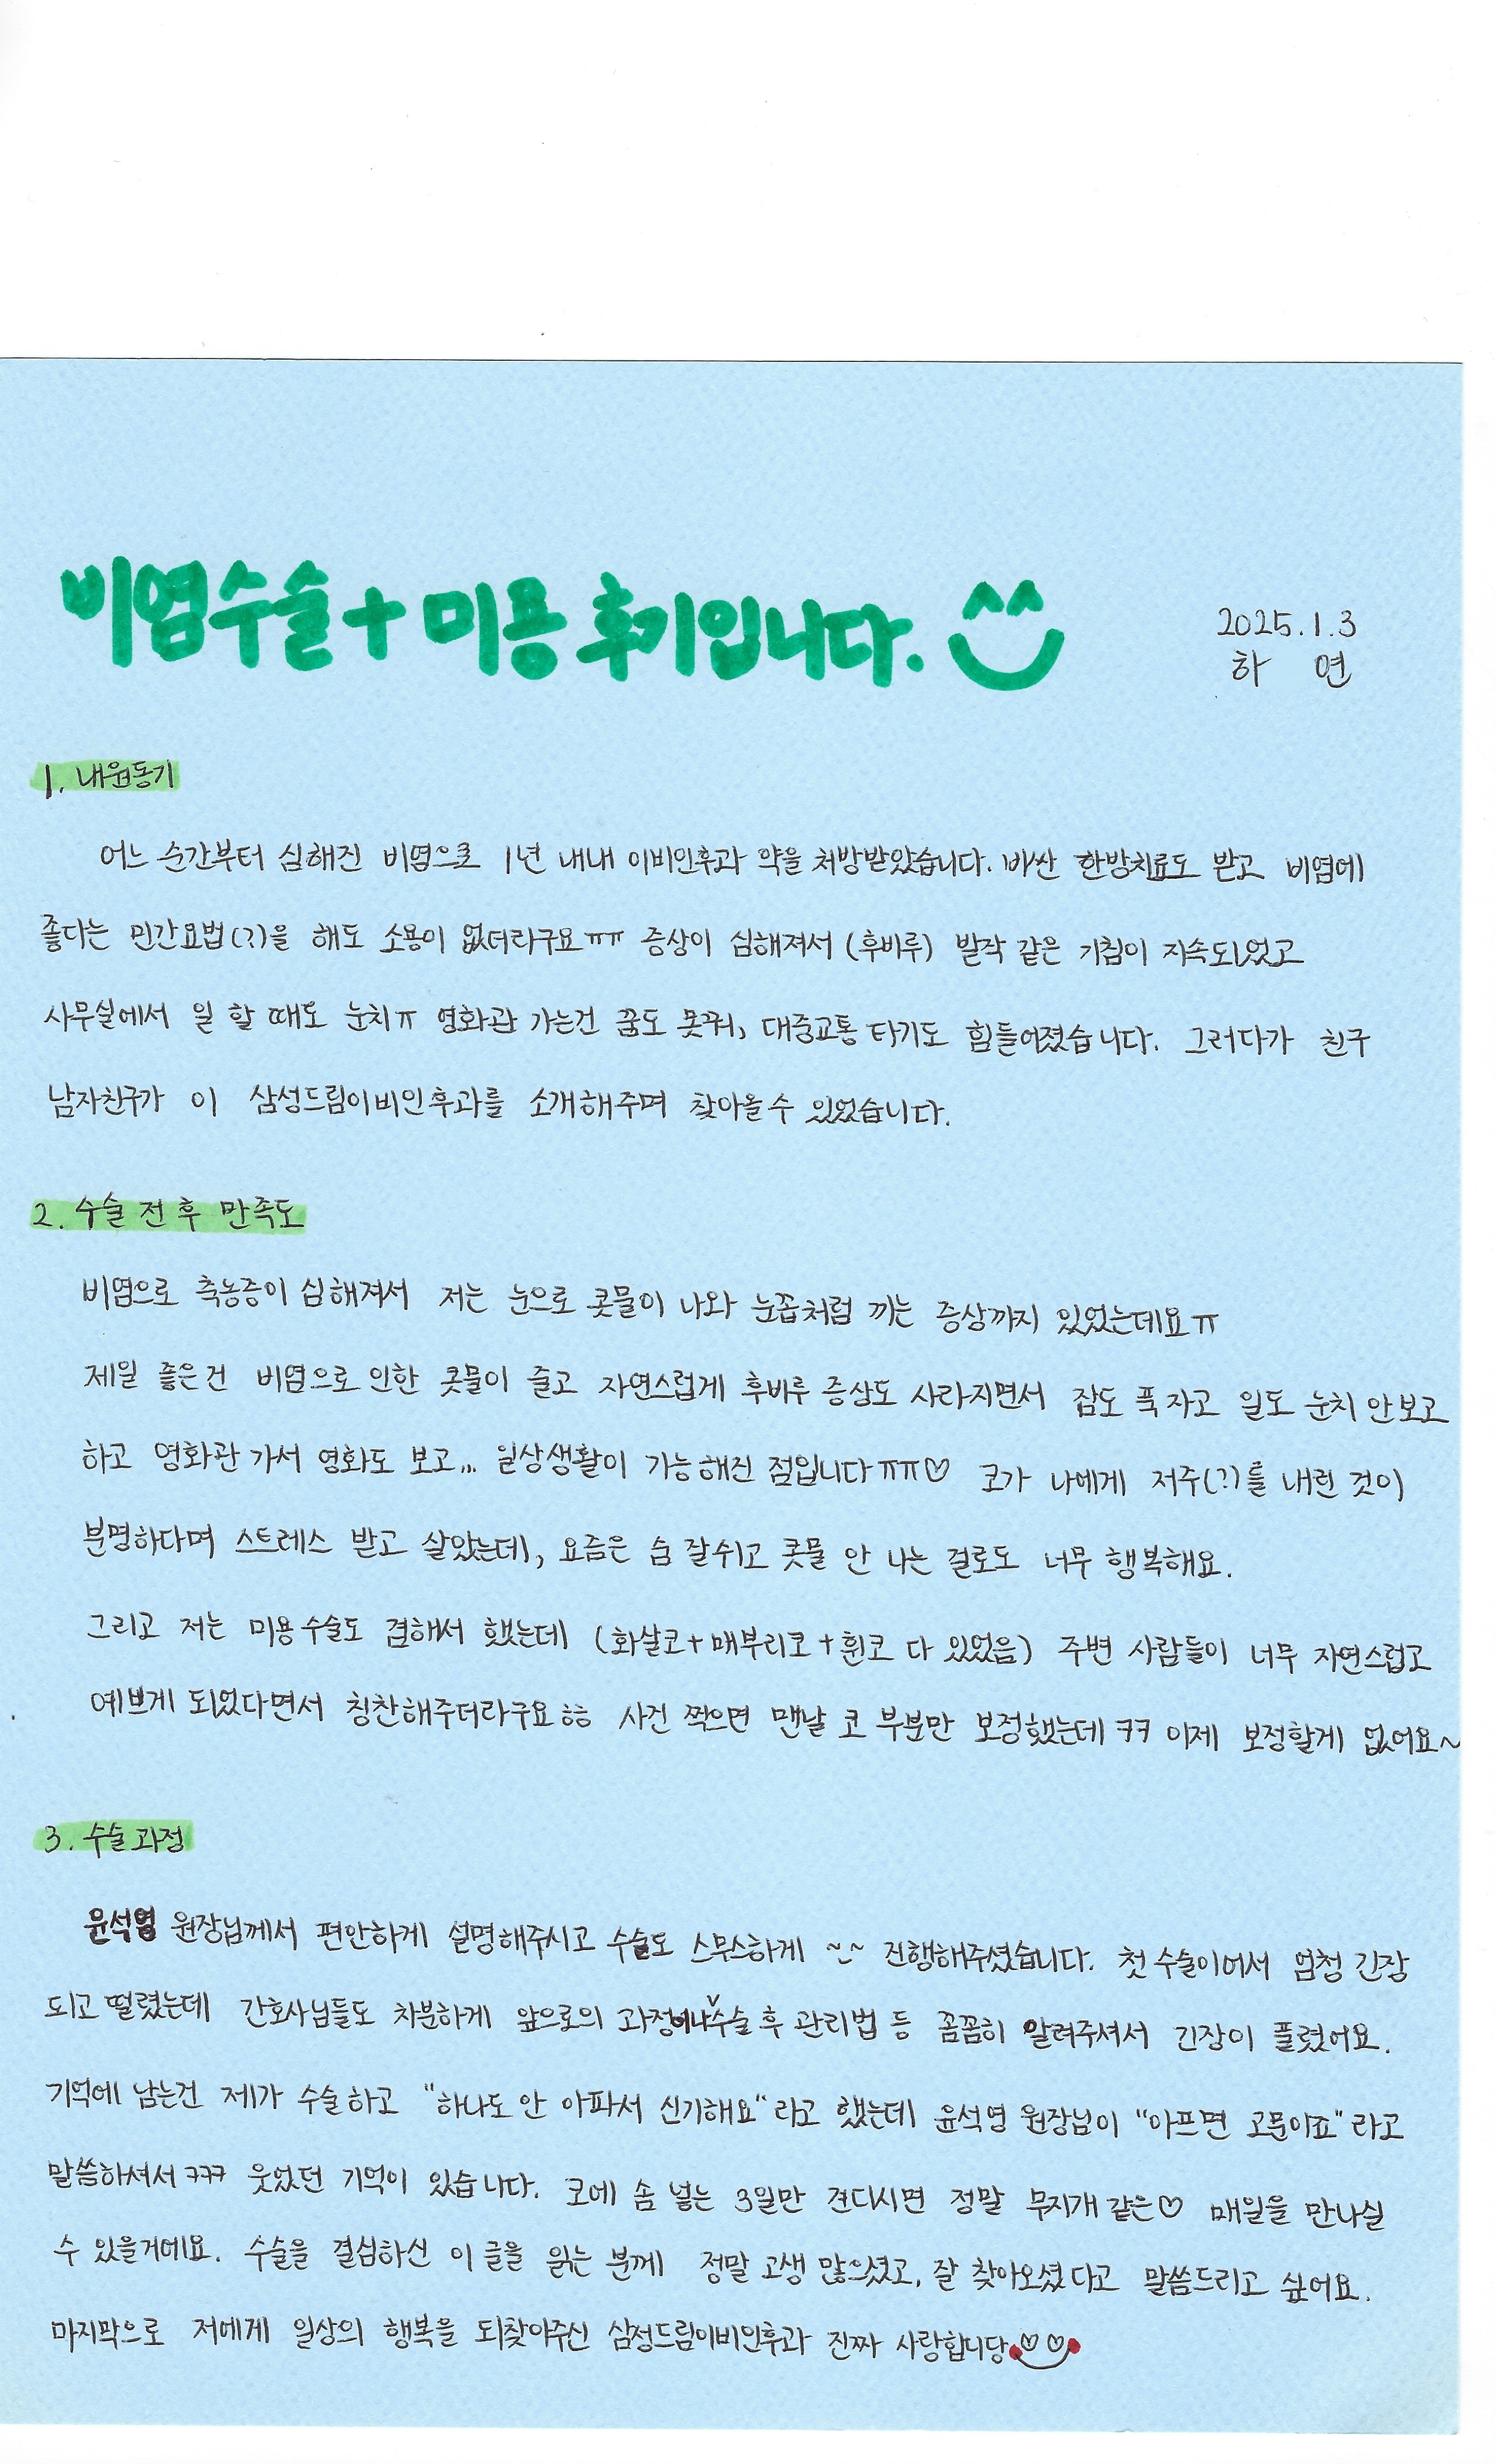 비염수술+미용 후기입니다.
2025.1.3
하 연
1. 내원동기
어느 순간부터 심해진 비염으로 1년 내내 이비인후과 약을 처방받았습니다. 비싼 한방치료도 받고 비염에
좋다는 민간요법(?)을 해도 소용이 없더라구요ㅠㅠ 증상이 심해져서 (후비루) 발작 같은 기침이 지속되었고
사무실에서 일 할 때도 눈치ㅠ 영화관 가는건 꿈도 못꿔, 대중교통 타기도 힘들어졌습니다. 그러다가 친구
남자친구가 이 삼성드림이비인후과를 소개해주며 찾아올수 있었습니다.
2. 수술 전후 만족도
비염으로 축농증이 심해져서 저는 눈으로 콧물이 나와 눈꼽처럼 끼는 증상까지 있었는데요ㅠ
제일 좋은건 비염으로 인한 콧물이 줄고 자연스럽게 후비루 증상도 사라지면서 잠도 푹 자고 일도 눈치 안보고
하고 영화관 가서 영화도 보고... 일상생활이 가능해진 점입니다ㅠㅠ♡ 코가 나에게 저주(?)를 내린 것이
분명하다며 스트레스 받고 살았는데, 요즘은 숨 잘쉬고 콧물 안 나는 걸로도 너무 행복해요.
그리고 저는 미용수술도 겸해서 했는데 (화살코+매부리코+휜코 다 있었음) 주변 사람들이 너무 자연스럽고
예쁘게 되었다면서 칭찬해주더라구요ㅎㅎ 사진 찍으면 맨날 코 부분만 보정했는데 ㅋㅋ 이제 보정할게 없어요~
3. 수술과정
윤석영 원장님께서 편안하게 설명해주시고 수술도 스무스하게 ~~ 진행해주셨습니다. 첫 수술이어서 엄청 긴장
되고 떨렸는데 간호사님들도 차분하게 앞으로의 과정이나 수술 후 관리법 등 꼼꼼히 알려주셔서 긴장이 풀렸어요.
기억에 남는건 제가 수술하고 "하나도 안 아파서 신기해요"라고 했는데 윤석영 원장님이 "아프면 고문이죠"라고
말씀하셔서 ㅋㅋㅋ 웃었던 기억이 있습니다. 코에 솜 넣는 3일만 견디시면 정말 무지개 같은♡ 매일을 만나실
수 있을거에요. 수술을 결심하신 이 글을 읽는 분께 정말 고생 많으셨고, 잘 찾아오셨다고 말씀드리고 싶어요.
마지막으로 저에게 일상의 행복을 되찾아주신 삼성드림이비인후과 진짜 사랑합니당